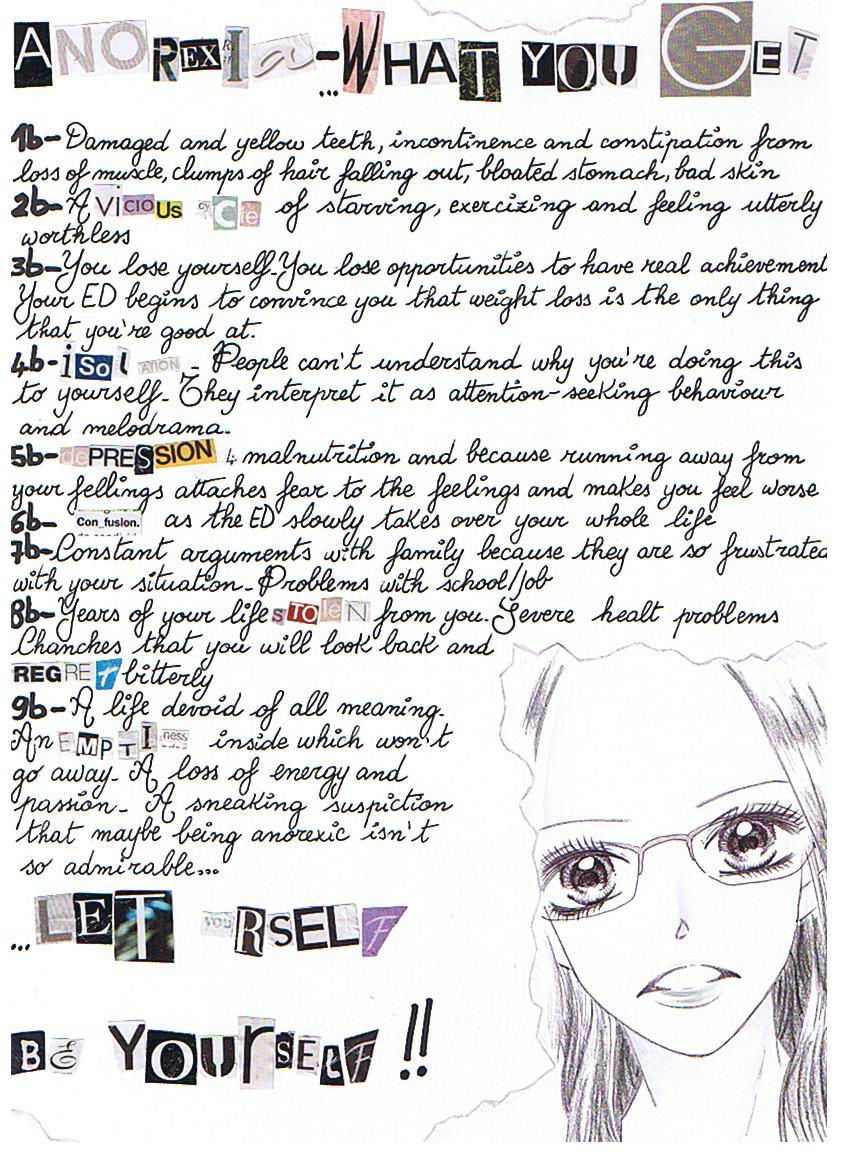 ANOREXIa-...WHAT YOU GET
1b-Damaged and yellow teeth, incontinence and constipation from
loss of muscle, clumps of hair falling out, bloated stomach, bad skin
2b-A VICIOUS cycle of starving, exercizing and feeling utterly
worthless
3b-You lose yourself-You lose opportunities to have real achievement
Your ED begins to convince you that weight loss is the only thing
that you're good at.
4b-iSolATION - People can't understand why you're doing this
to yourself- They interpret it as attention-seeking behaviour
and melodrama-
5b-dePRESSION 4 malnutrition and because running away from
your fellings attaches fear to the feelings and makes you feel worse
6b- Con_fusion. as the ED slowly takes over your whole life
7b-Constant arguments with family because they are so frustrated
with your situation-Problems with school/job
8b-Years of your life STOleN from you. Severe healt problems
Chanches that you will look back and
REGRET bitterly
9b-A life devoid of all meaning-
An EMPTIness inside which won't
go away- A loss of energy and
passion- A sneaking suspicion
that maybe being anorexic isn't
so admirable...
...LET YOURSELF
BE YOURSELF !!